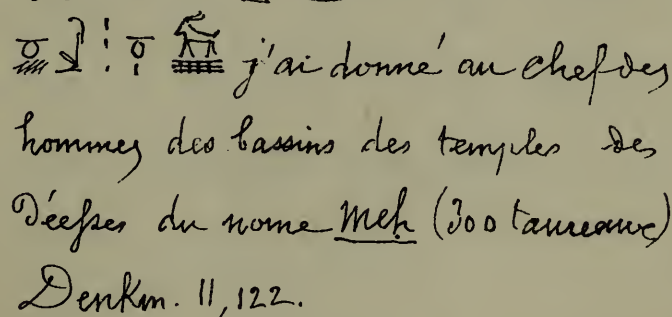 j'ai donné au chef des
hommes des bassins des temples des
Déesses du nome Meh (300 taureaux)
Denkm. II, 122.